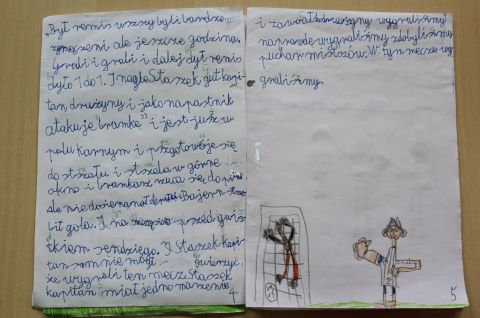 Był remis wszyscy byli bardzo
zmęczeni ale jeszcze godzina.
Grali i grali i dalej był remis
było 1 do 1. I nagle Staszek jut kapi-
tan drużyny i jako napastnik
atakuje bramkę" i jest już w
polu karnym i pszgotowóje się
do stszału i stszela w górne
okno i bramkarz rzuca się do piłki
ale nie dosięna Bajern
lił gola. I na przed gwiz
tkiem sendziego. I Staszek kapi-
tan sam nie mógł uwieżyć,
że wygrali ten mecz. Staszek
kapitan miał jedno mażenie
4
i zawołał drużyny wygraliśmy!
naprawdę wygraliśmy zdobyliśmy
puchar mistszów. W tym meczu wy-
graliśmy.
5